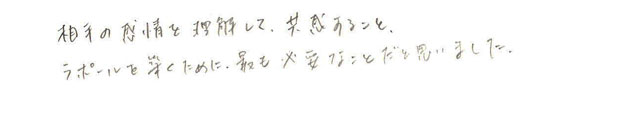 相手の感情を理解して、共感すること、
ラポールを築くために、最も必要なことだと思いました。